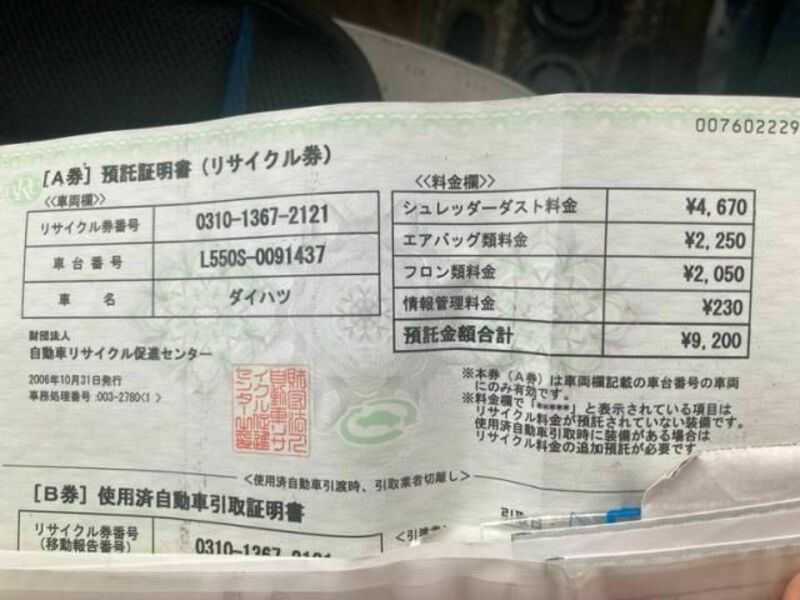 007602229
[A券] 預託証明書 (リサイクル券)
<<車両欄>>
リサイクル券番号 0310-1367-2121
車台番号 L550S-0091437
車名 ダイハツ
財団法人
自動車リサイクル促進センター
2006年10月31日発行
事務処理番号:003-2780(1 )
<<料金欄>>
シュレッダーダスト料金 ¥4,670
エアバッグ類料金 ¥2,250
フロン類料金 ¥2,050
情報管理料金 ¥230
預託金額合計 ¥9,200
※本券 (A券) は車両欄記載の車台番号の車両
にのみ有効です。
※料金欄で「*****」と表示されている項目は
リサイクル料金が預託されていない装備です。
使用済自動車引取時に装備がある場合は
リサイクル料金の追加預託が必要です
<使用済自動車引渡時、引取業者切離し>
[B券] 使用済自動車引取証明書
リサイクル券番号
(移動報告番号) 0310-1367-2121